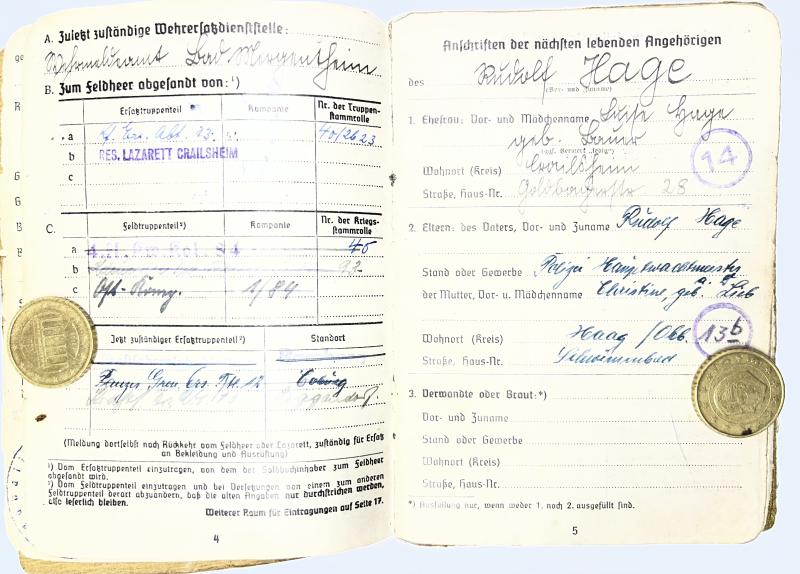 A. Zuletzt zuständige Wehrersatzdienststelle:
Wehrmeldeamt Bad Mergentheim
B. Zum Feldheer abgesandt von:¹)
Ersatztruppenteil Kompanie Nr. der Truppen-
stammrolle
a Kf. Ers. Abt. 23 40/2623
b RES. LAZARETT CRAILSHEIM
c
C. Feldtruppenteil²) Kompanie Nr. der Kriegs-
stammrolle
a 84 46
b 92
c 1/84
Jetzt zuständiger Ersatztruppenteil²) Standort
Panzer Gren. Ers. 12 Coburg
(Meldung dortselbst nach Rückkehr vom Feldheer oder Lazarett, zuständig für Ersatz
an Bekleidung und Ausrüstung)
¹) Vom Ersatztruppenteil einzutragen, von dem der Soldbuchinhaber zum Feldheer
abgesandt wird.
²) Vom Feldtruppenteil einzutragen und bei Versetzungen von einem zum anderen
Feldtruppenteil derart abzuändern, daß die alten Angaben nur durchstrichen werden,
also leserlich bleiben.
Weiterer Raum für Eintragungen auf Seite 17.
4
Anschriften der nächsten lebenden Angehörigen
des Rudolf Hage
(Vor- und Zuname)
1. Ehefrau: Vor- und Mädchenname Luise Hage
geb. Bauer
(ggf. Vermerk „ledig“)
Wohnort (Kreis) Crailsheim
Straße, Haus-Nr. Goldbacherstr 28
14
2. Eltern: des Vaters, Vor- und Zuname Rudolf Hage
Stand oder Gewerbe Polizei Hauptwachtmeister
der Mutter, Vor- u. Mädchenname Christine, geb. Lieb
Wohnort (Kreis) Haag /Obb.
13b
Straße, Haus-Nr. Schwimmbad
3. Verwandte oder Braut:*)
Vor- und Zuname
Stand oder Gewerbe
Wohnort (Kreis)
Straße, Haus-Nr.
*) Ausfüllung nur, wenn weder 1. noch 2. ausgefüllt sind.
5